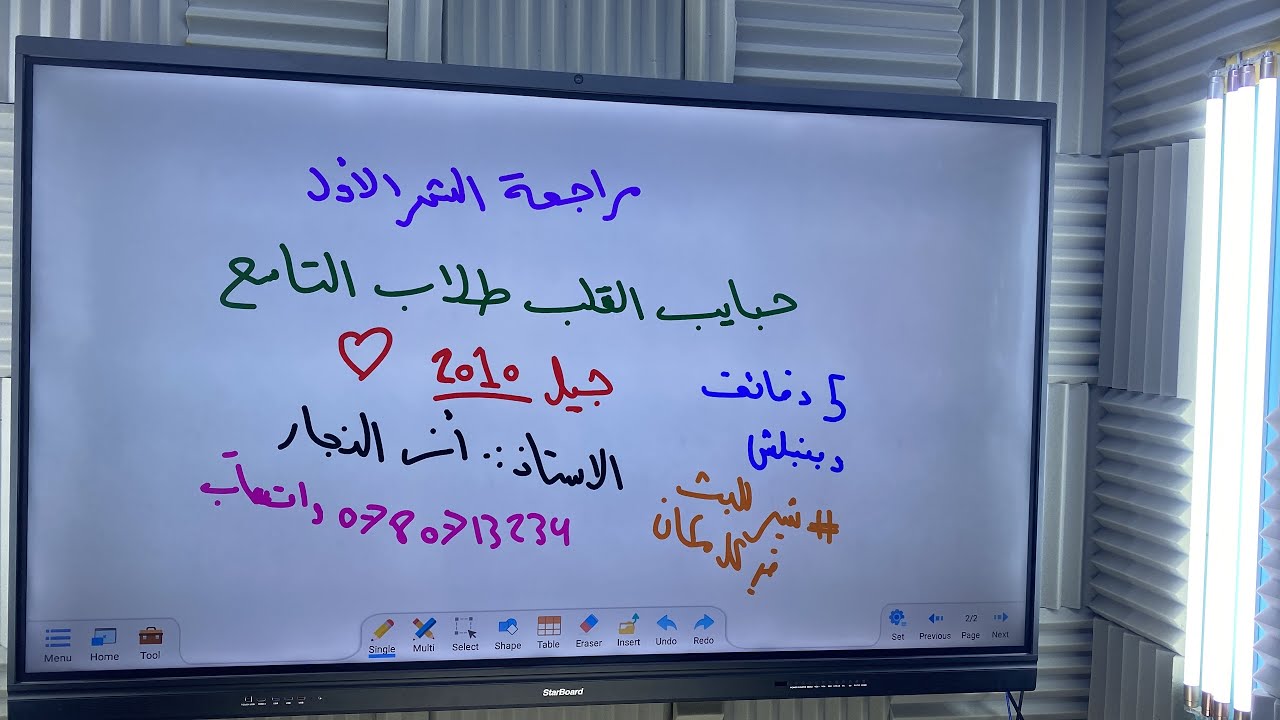 مراجعة الشهر الاول
حبايب القلب طلاب التاسع
جيل 2010 ♡
5 دقائق
وبنبلش
الاستاذ :. أنس النجار
0780713234 واتساب
# شير للبث
في كل مكان
Menu Home Tool
Single Multi Select Shape Table Eraser Insert Undo Redo
Set Previous 2/2 Page Next
StarBoard